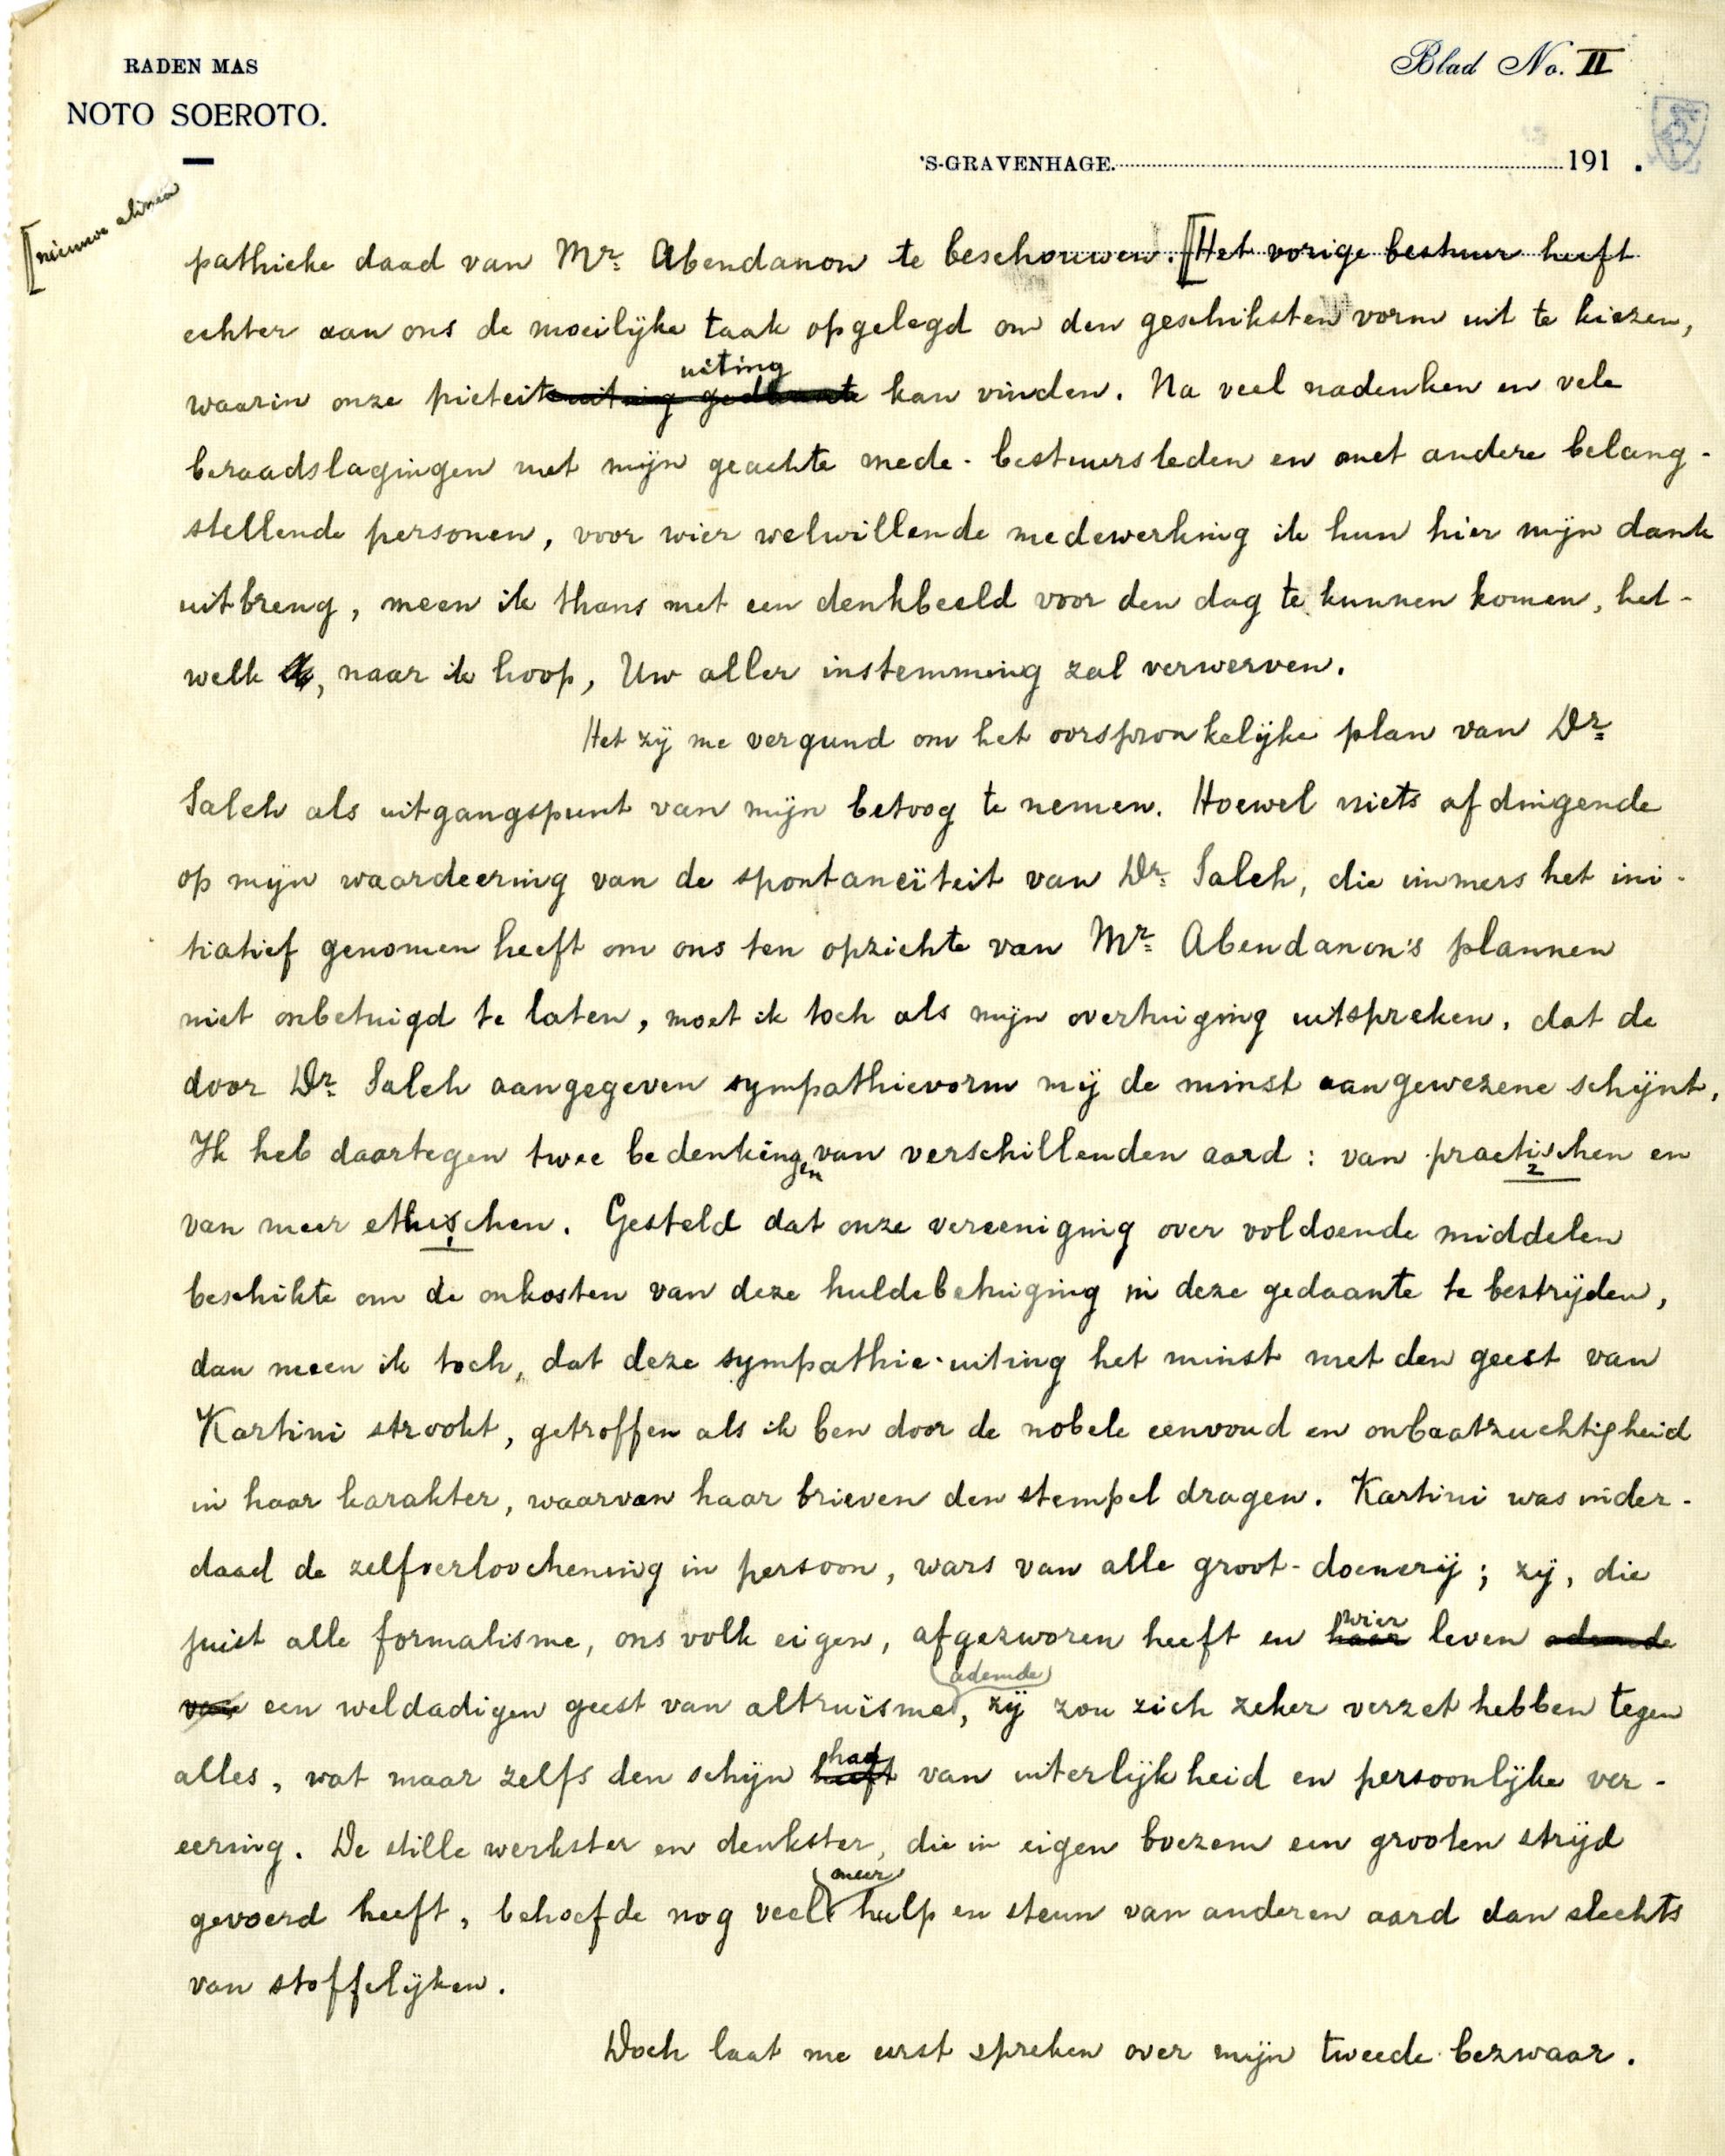 RADEN MAS
NOTO SOEROTO.
Blad No. II
'S-GRAVENHAGE. 191 .
[nieuwe alinea
pathieke daad van Mr. Abendanon te beschouwen. [Het vorige bestuur heeft
echter aan ons de moeilijke taak opgelegd om den geschiksten vorm uit te kiezen,
uiting
waarin onze pieteit kan vinden. Na veel nadenken en vele
beraadslagingen met mijn geachte mede-bestuursleden en met andere belang-
stellende personen, voor wier welwillende medewerking ik hun hier mijn dank
uitbreng, meen ik thans met een denkbeeld voor den dag te kunnen komen, het-
welk , naar ik hoop, Uw aller instemming zal verwerven.
Het zij me vergund om het oorspronkelijke plan van Dr.
Saleh als uitgangspunt van mijn betoog te nemen. Hoewel niets afdingende
op mijn waardeering van de spontaneïteit van Dr. Saleh, die immers het ini-
tiatief genomen heeft om ons ten opzichte van Mr. Abendanon's plannen
niet onbetuigd te laten, moet ik toch als mijn overtuiging uitspreken, dat de
door Dr. Saleh aangegeven sympathievorm mij de minst aangewezene schijnt.
Ik heb daartegen twee bedenkingen van verschillenden aard: van practischen en
2
van meer ethischen. Gesteld dat onze vereeniging over voldoende middelen
1
beschikte om de onkosten van deze huldebetuiging in deze gedaante te bestrijden,
dan meen ik toch, dat deze sympathie-uiting het minst met den geest van
Kartini strookt, getroffen als ik ben door de nobele eenvoud en onbaatzuchtigheid
in haar karakter, waarvan haar brieven den stempel dragen. Kartini was inder-
daad de zelfverloochening in persoon, wars van alle groot-doenerij; zij, die
wier
juist alle formalisme, ons volk eigen, afgezworen heeft en haar leven ademde
ademde
van een weldadigen geest van altruïsme, zij zou zich zeker verzet hebben tegen
had
alles, wat maar zelfs den schijn heeft van uiterlijkheid en persoonlijke ver-
eering. De stille werkster en denkster, die in eigen boezem een grooten strijd
meer
gevoerd heeft, behoefde nog veel hulp en steun van anderen aard dan slechts
van stoffelijken.
Doch laat me eerst spreken over mijn tweede bezwaar.